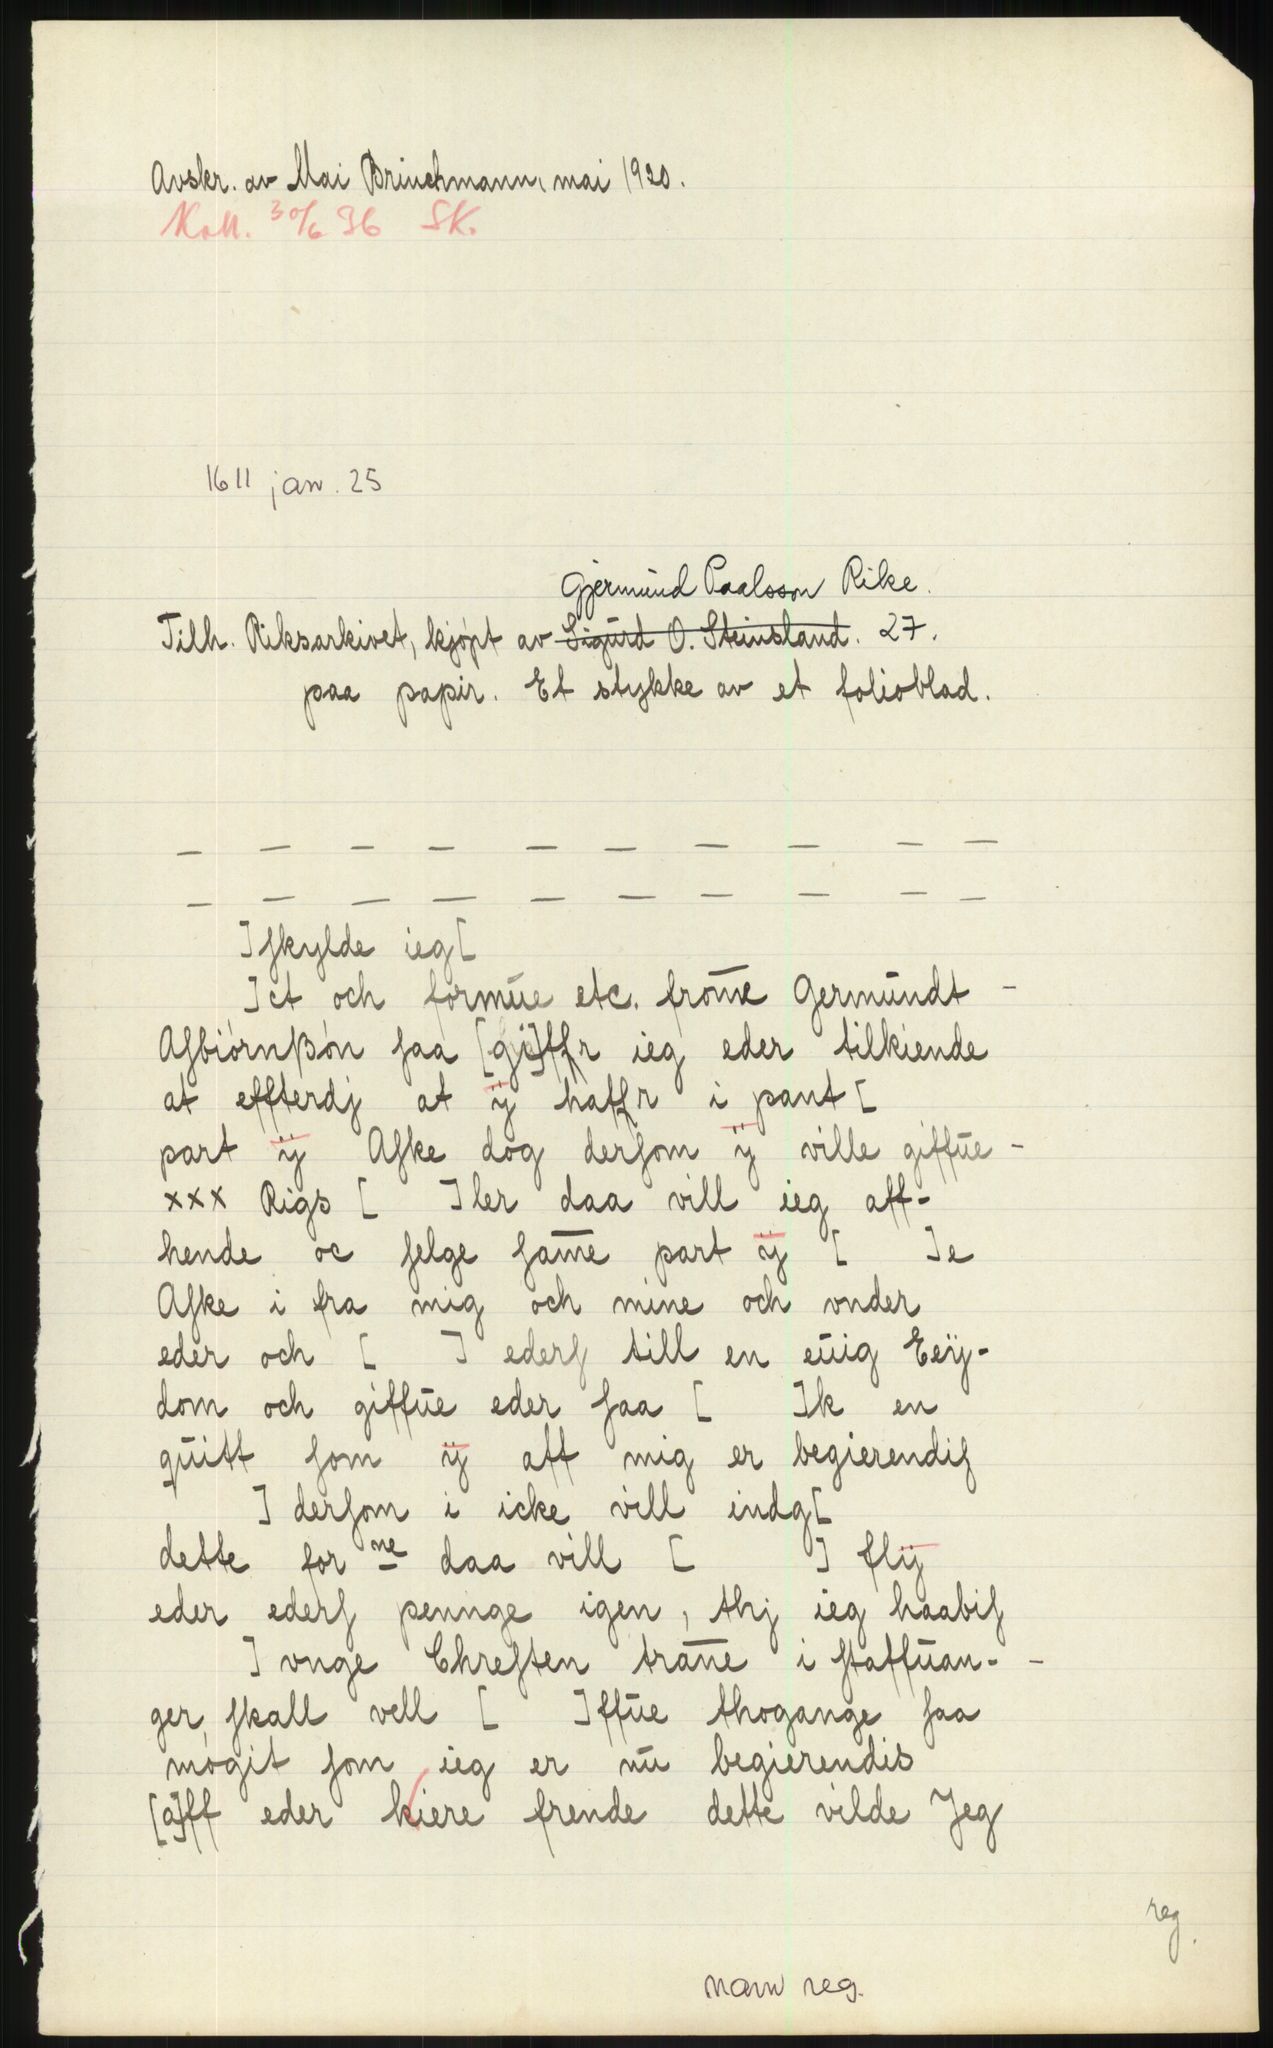 Avskr. av Mai Brinchmann, mai 1920.
Koll. 30/6 36 SK.
1611 jan. 25
Gjermund Paalsson Rike.
Tilh. Riksarkivet, kjøpt av Sigurd O. Steinsland. 27.
paa papir. Et stykke av et folioblad.
— — — — — — — — — —
— — — — — — — — — —
] ſkylde ieg [
] ct och formŭe etc. from̅e Germŭndt –
Aſbiórnßón ſaa [gi]ffr ieg eder tilkiende
at effterdj at ÿ haffr i pant [
part ÿ Aſke dog derſom ÿ ville giffŭe –
xxx Rigs [ ] ler daa vill ieg aff-
hende oc ſelge ſam̅e part ÿ [ ] e
Aſke i fra mig och mine och vnder
eder och [ ] ederſ till en eŭig Eeÿ-
dom och giffŭe eder ſaa [ ] k en
qŭitt ſom ÿ aff mig er begierendiſ
] derſom i icke vill indg [
dette for ne daa vill [ ] flÿ
eder ederſ pennge igen, thj ieg haabiſ
] vnge Chreſten tran̅e i ſtaffŭan- –
ger ſkall vell [ ] ffŭe thogange ſaa
mógit ſom ieg er nŭ begierendis
[a]ff eder kiere frende dette vilde Jeg
reg.
navn reg.